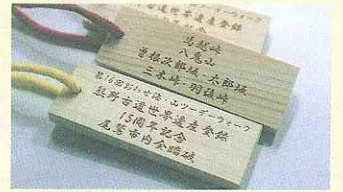 古道世界遺産登録
馬越峠
八鬼山
曽根次郎坂・太郎坂
三木峠・羽後峠
第16回おわせ海・山ツーデーウォーク
熊野古道世界遺産登録
15周年記念
尾鷲市内全踏破